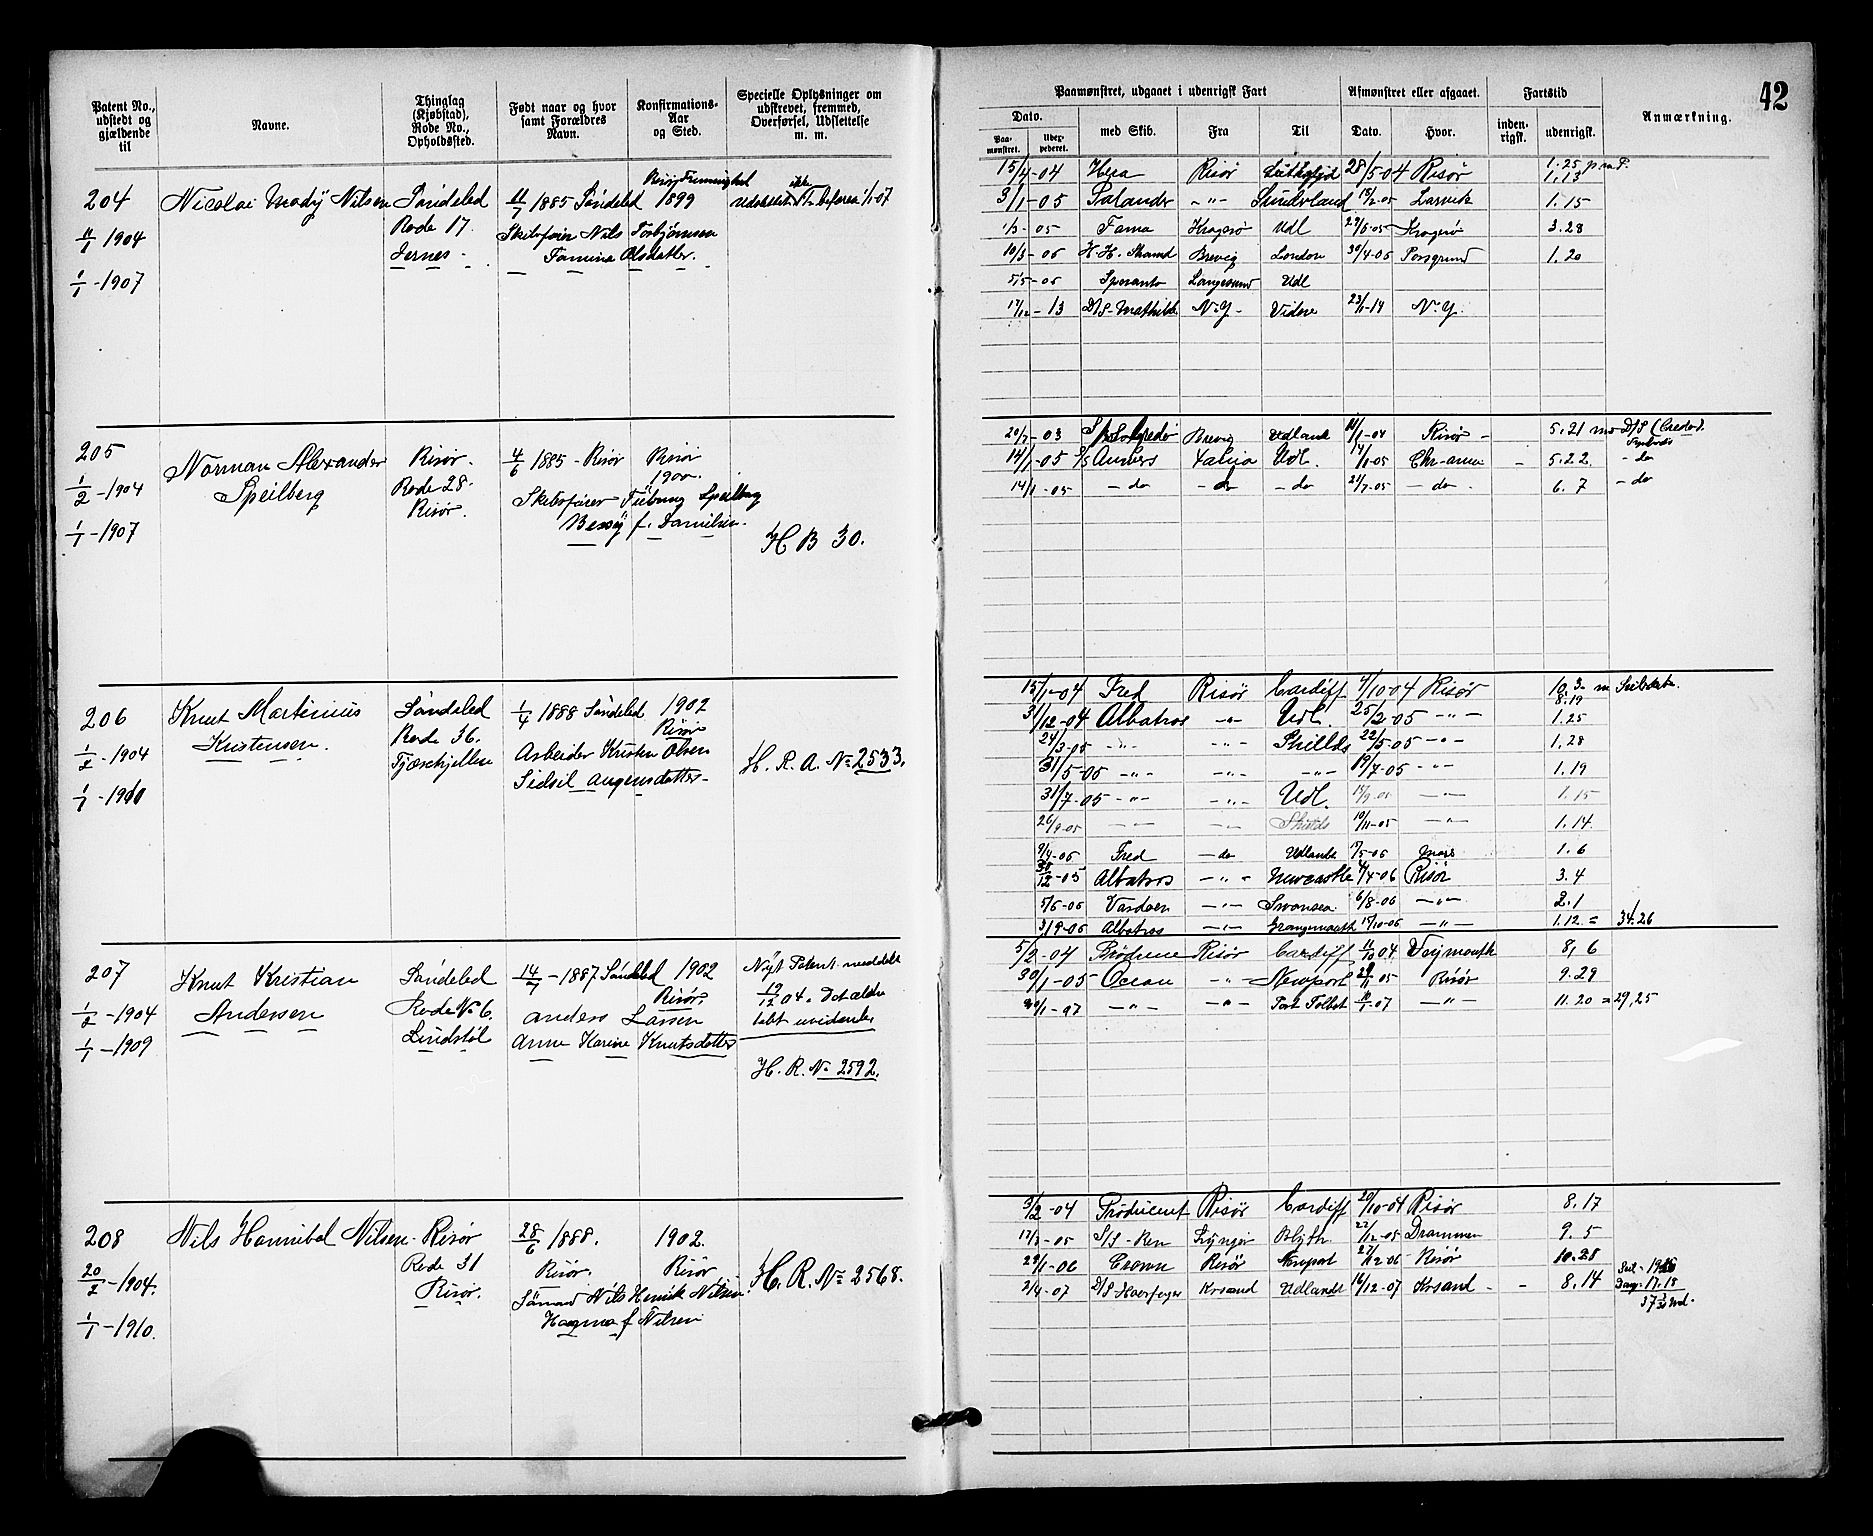 42
Patent No., udstedt og gjældende til
Navne.
Thinglag (Kjøbstad), Rode No., Opholdssted.
Født naar og hvor samt Forældres Navn.
Konfirmations-Aar og Sted.
Specielle Oplysninger om udskrevet, fremmed, Overførsel, Udslettelse m. m.
Paamønstret, udgaaet i udenrigsk Fart
Dato.
Paa-mønstret.
med Skib.
Fra
Til
Afmønstret eller afgaaet.
Dato.
Hvor.
Fartstid
inden-rigsk.
udenrigsk.
Anmærkning.
204
11/1 1904
1/1-1907
Nicolai Mady Nilsen
Søndeled
Rode 17.
Jernes-
11/7 1885 Søndeled 1899
Skibsfører Nils Torbjørnsen
Olsdatter.
15/4-04 Hera Risør 28/5 04 Risør 1.25
1.13
3/1-05 Palander -"- Sunderland 18/2-05 Larvik 1.15
1/3-05 Fama Kragerø Udl 29/6-05 Kragerø 3.28
10/3-06 H. H. Brevig London 30/4-06 Porsgrund 1.20
5/5-06 Speranto Langesund Udl
17/12-13 D/S-Mathilde N.Y- Videre 23/1-14 N.Y.
205
1/2-1904
1/1-1907
Norman Alexander
Speilberg
Risør.
Rode 28.
Risør.
4/6 1885-Risør Risør
1900.
Skibsfører Speilberg
f. Danielsen.
H B 30.
20/7-03 Brevig Udland 11/1-04 Risør- 5.21 D/S
14/1-05 Udl. 14/1-05 Chr-ania - 5.22 -do
14/1-05 -do -do -do 21/7-05 -do- 6.7 -do
206
1/2-1904
1/1-1910
Knut Martinius
Kristensen.
Søndeled
Rode 36.
1/4 1888 Søndeled 1902
Risør
Arbeider Kristen Olsen
Sidsel
H. R. A. No 2533.
15/1-04 Fred Risør Cardiff 4/10-04 Risør 10.3
8.19
31/12-04 Albatros -"- Udl. 25/2-05 -"- 1.25
24/3-05 -"- -"- Shillds 22/5-05 -"- 1.28
31/5-05 -"- -"- -"- 19/7-05 -"- 1.19
31/7-05 -"- -"- Udl. -"- 1.15
26/9-05 -"- -"- Shields 10/11-05 -"- 1.14.
9/4-06 Fred -do Udlandet 15/5-06 Moss 1.6
30/12-05 Albatros -"- Newcastle 4/4-06 Risør 3.4
5/6-06 Vardøen -"- Swansea 6/8-06 -"- 2.1
3/9-06 Albatros -"- Grangemouth 15/10-06 -"- 1.12.= 34.26
207
1/2-1904
1/1-1909
Knut Kristian
Andersen
Søndeled
Rode No 6.
Lindstøl
14/1-1887 Søndeled 1902
Risør.
Anders Larsen
Anne Karine Knutsdatter
Nyt Patent meddelt
19/12 04. Det ældre
tabt
H. R. No 2592.
5/2-04 Brødrene Risør Cardiff 11/10 04. Weymouth 8,6
30/1-05 Ocean -"- Newport 29/11 05 Risør 9.29
-"- -"- Port Talbot -07 -"- 11.20 =29,25
208
20/2-1904.
1/1-1910.
Nils Hannibal Nilsen-
Risør
Rode 31
Risør.
28/6 1888. 1902.
Risør. Risør
Sømand Nils Henrik Nilsen
Hagma f. Nilsen
H. R. No 2568.
3/2-04 Producent Risør Cardiff 20/10-04 Risør 8.17
17/3-05 S/S-Ken Lyngør Blyth 22/12-05 Drammen 9.5
29/1-06 Crown Risør Newport 27/12 06 Risør 10.28
2/4-07 D/S-Haarfager Krsand Udlandet 16/12-07 Krsand- - 8.14